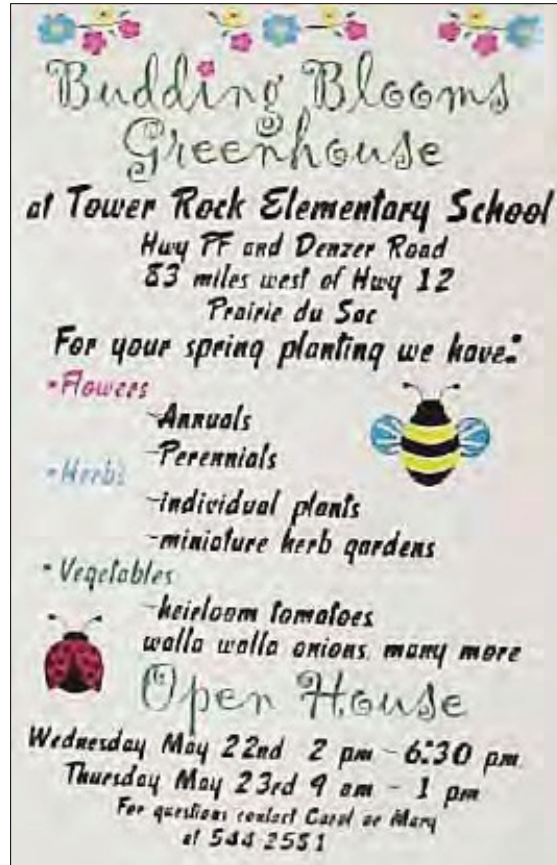 Budding Blooms
Greenhouse
at Tower Rock Elementary School
Hwy PF and Denzer Road
83 miles west of Hwy 12
Prairie du Sac
For your spring planting we have:
• Flowers
-Annuals
-Perennials
• Herbs
-individual plants
-miniature herb gardens
• Vegetables
-heirloom tomatoes
walla walla onions, many more
Open House
Wednesday May 22nd 2 pm - 6:30 pm
Thursday May 23rd 9 am - 1 pm
For questions contact Carol or Mary
at 544-2551